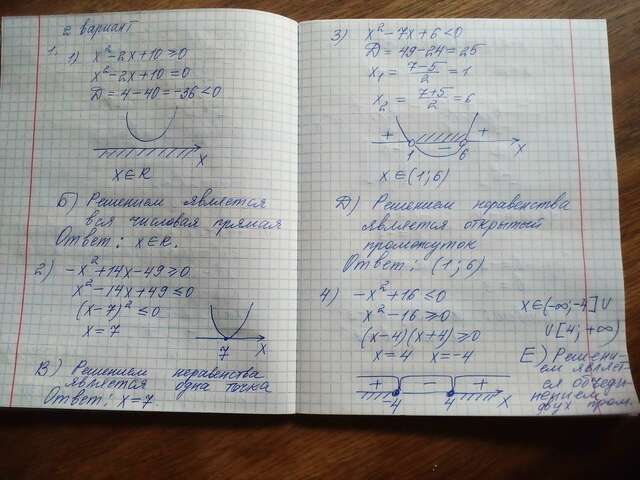 2 вариант
1. 1) x² - 2x + 10 ≥ 0
x² - 2x + 10 = 0
D = 4 - 40 = -36 < 0
x
x ∈ R
Б) Решением является
вся числовая прямая
Ответ: x ∈ R.
2) -x² + 14x - 49 ≥ 0
x² - 14x + 49 ≤ 0
(x - 7)² ≤ 0
x = 7
7 x
В) Решением неравенства
является одна точка
Ответ: x = 7.
3) x² - 7x + 6 < 0
D = 49 - 24 = 25
x₁ = (7-5)/2 = 1
x₂ = (7+5)/2 = 6
+ - +
1 6 x
x ∈ (1; 6)
Д) Решением неравенства
является открытый
промежуток
Ответ: (1; 6)
4) -x² + 16 ≤ 0
x² - 16 ≥ 0
(x-4)(x+4) ≥ 0
x = 4 x = -4
+ - +
-4 4 x
x ∈ (-∞; -4] ∪
∪ [4; +∞)
Е) Решени-
ем являет-
ся объеди-
нением
двух пром.